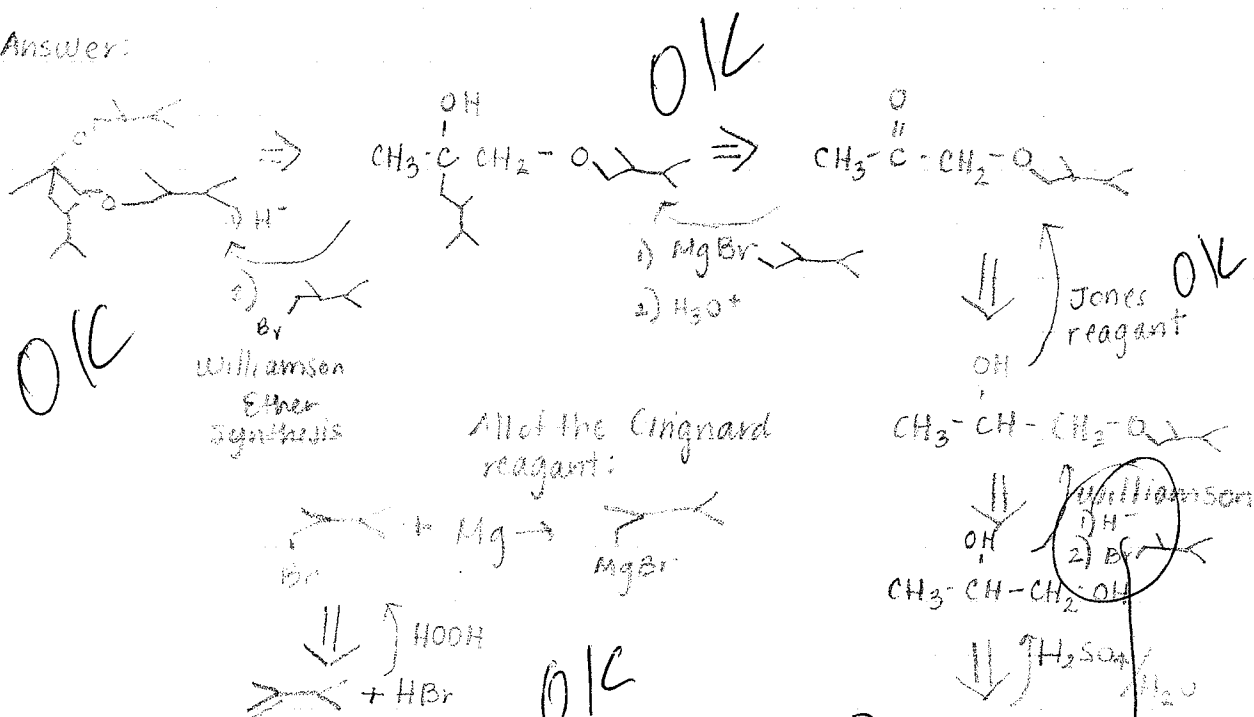 Answer:
OK
O
OH
CH3-C CH2-O
⇒
⇒
O
"
CH3-C-CH2-O
O
1) H⁻
2)
Br
Williamson
Ether
synthesis
OK
1) MgBr
2) H3O+
Jones
reagant
OK
OH
CH3-CH-CH2-O
All of the Grignard
reagant:
+ Mg →
Br
MgBr
HOOH
+ HBr
OK
Williamson
1) H⁻
2) Br
OH
CH3-CH-CH2-OH
H2SO4/
H2O